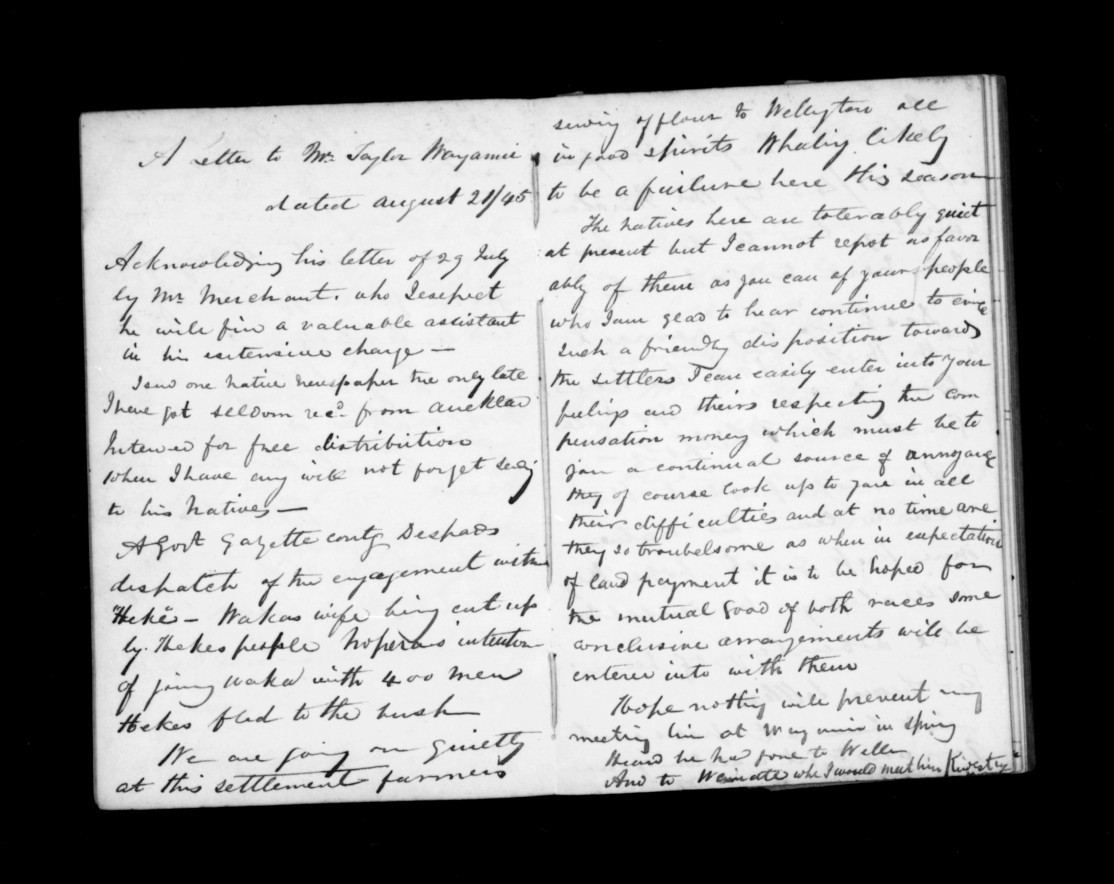 A Letter to Mr. Taylor
dated August 21/45
Acknowledging his letter of 29 July
by Mr Merchant. who I expect
he will fin a valuable assistant
in his extensive charge —
I send one native newspaper the only late
I have got seldom recd. from Aucklad
Intened for free distribution
When I have any will not forget
to his Natives —
A Govt Gazette contg Despads
dispatch of the engagement with
Heke — Wakas wife being cut up
by Hekes people intention
of joing Waka with 400 men
Hekes fled to the bush
We are going on quietly
at this settlement farmers
of flour to Wellington all
in good spirits Whaling likely
to be a failure here this season
The natives here are tolerably quiet
at present but I cannot repot as favor
ably of them as you can of your people
who I am glad to hear continue to evince
such a friendly disposition towards
the settlers I can easily enter into your
feelings and theirs respecting the com
pensation money which must be to
you a continual source of annoyance
they of course look up to you in all
their difficulties and at no time are
they so troubelsome as when in expectation
of land payment it is to be hoped for
the mutual good of both races some
conclusive arrangements will be
entered into with them
Hope nothing will prevent my
meeting him at in spring
Heard he had gone to Well
And to Waimate whe I would meet him